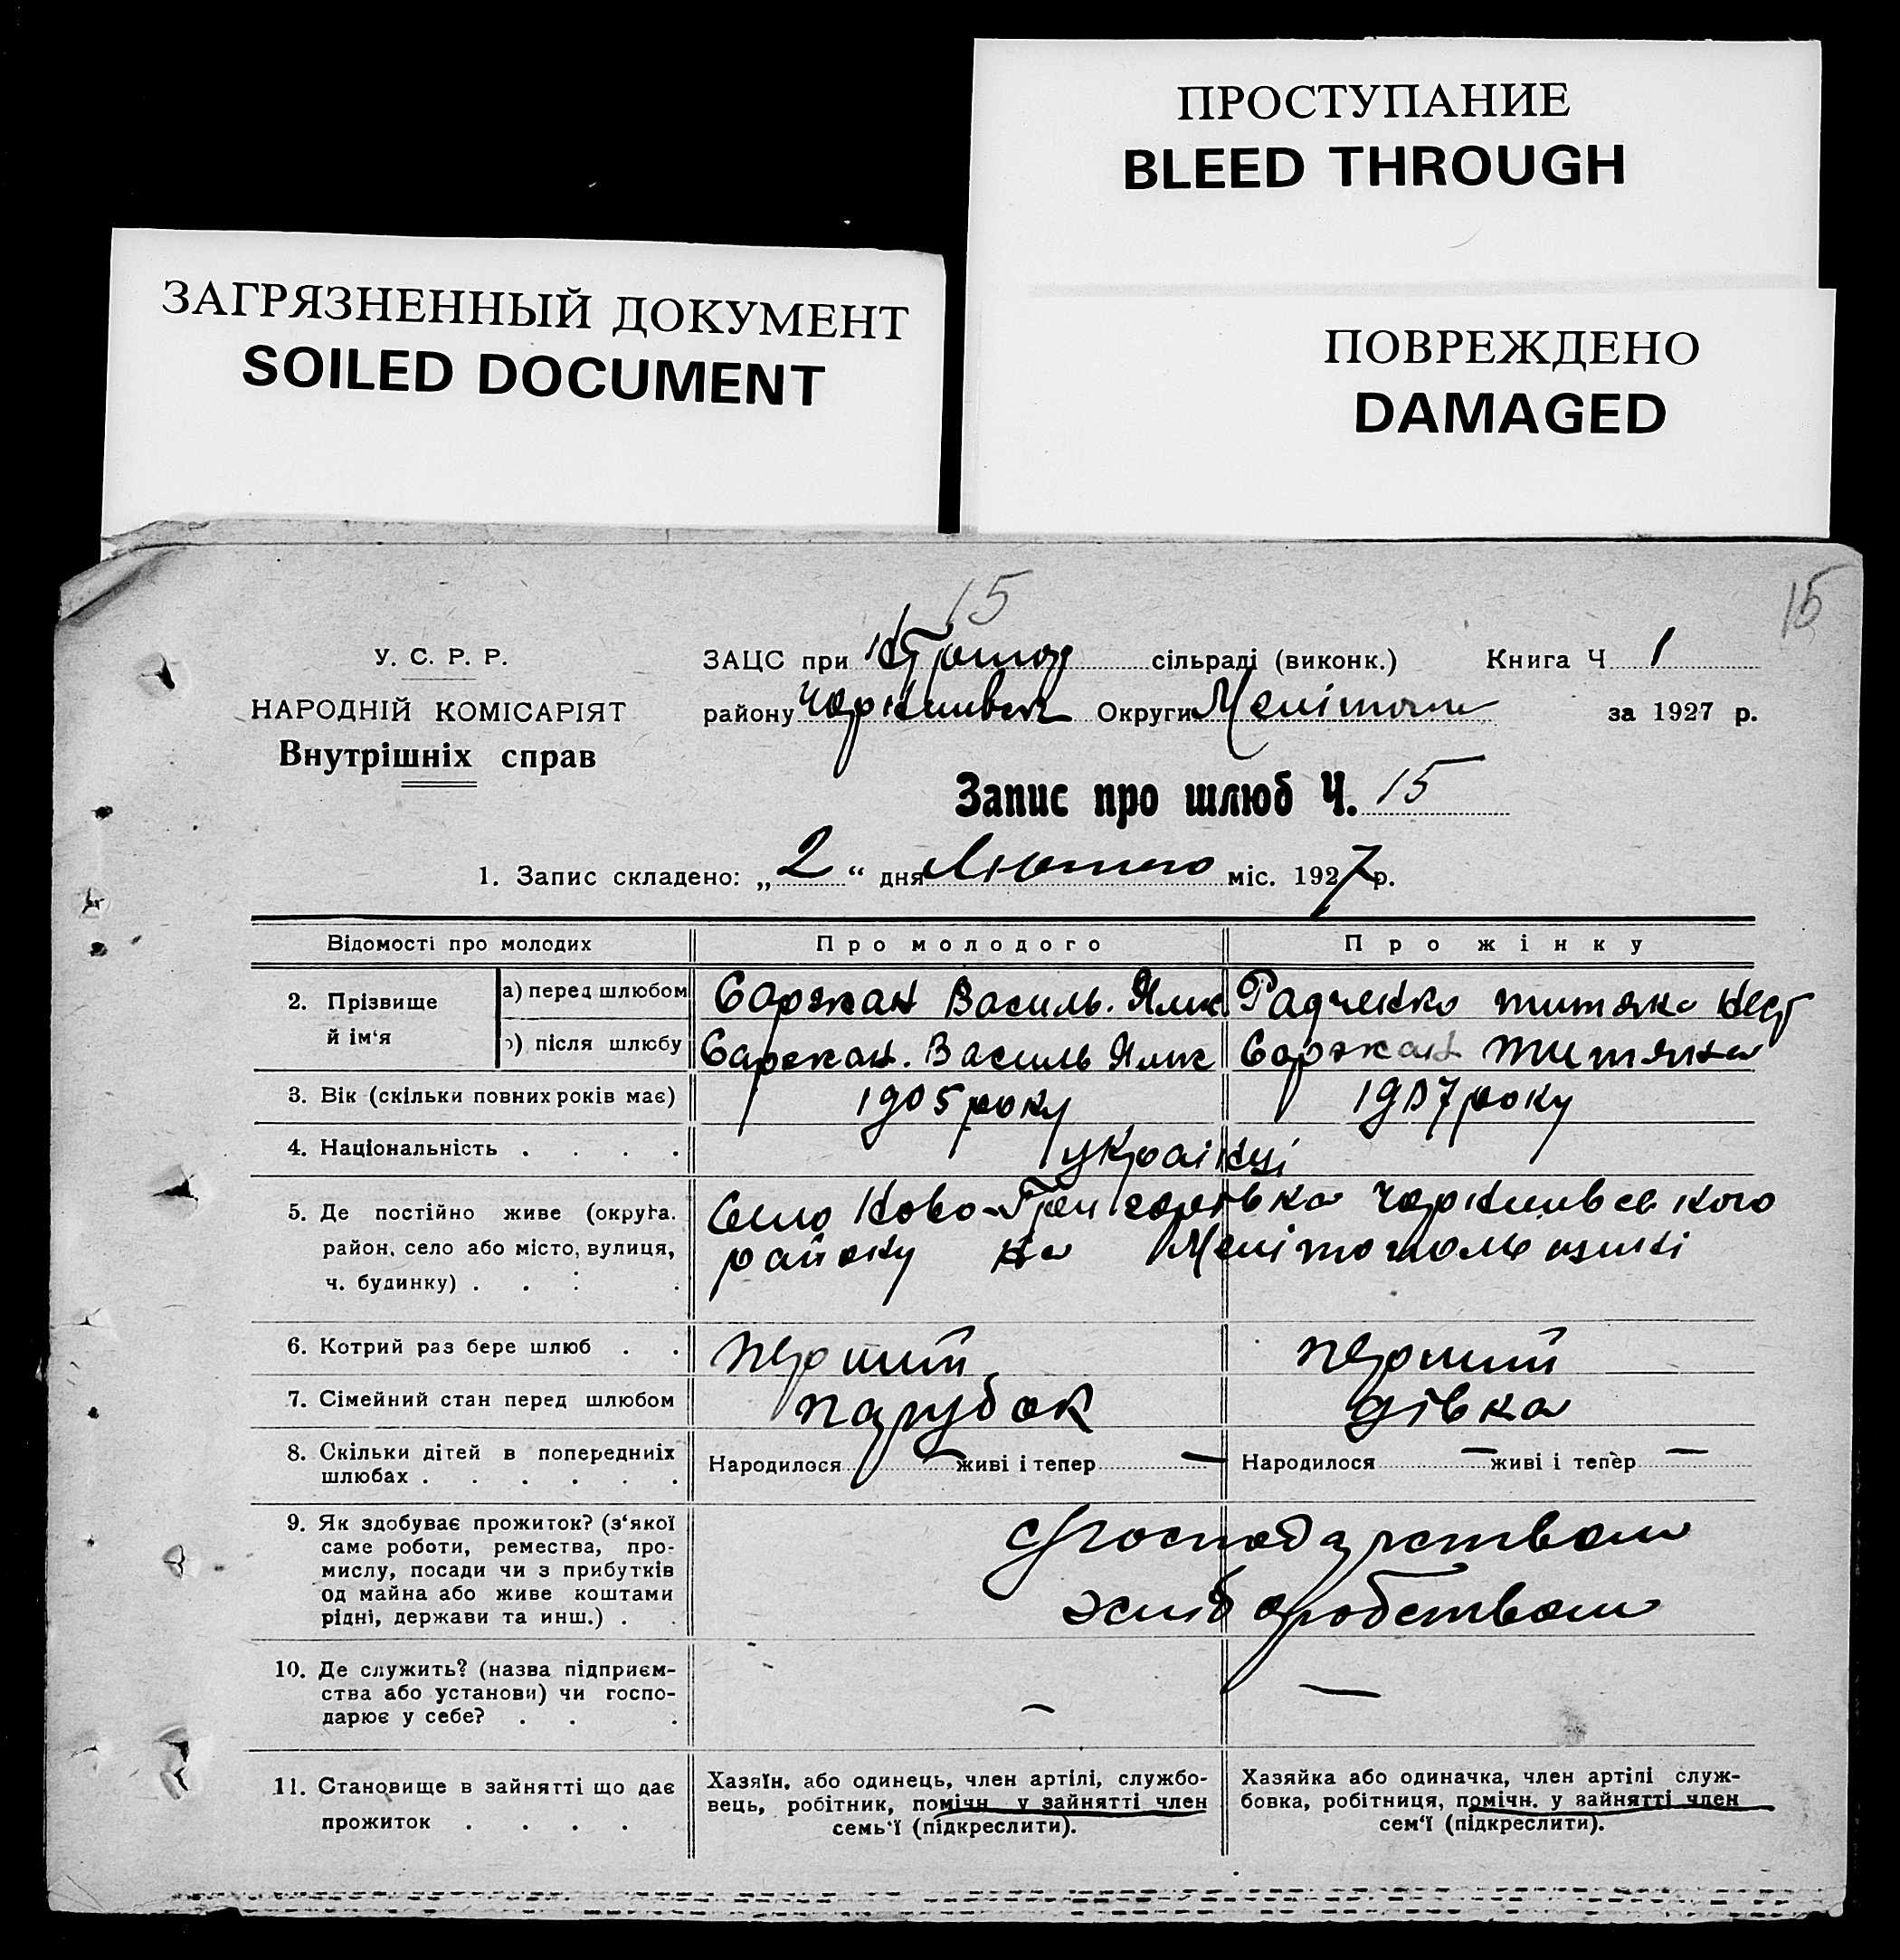 ПРОСТУПАНИЕ
BLEED THROUGH
ЗАГРЯЗНЕННЫЙ ДОКУМЕНТ
SOILED DOCUMENT
ПОВРЕЖДЕНО
DAMAGED
15
15
У. С. Р. Р.
НАРОДНІЙ КОМІСАРІЯТ
Внутрішніх справ
ЗАЦС при сільраді (виконк.) Книга Ч 1
району Округи за 1927 р.
Запис про шлюб Ч. 15
1. Запис складено: „2“ дня Лютого міс. 1927 р.
Відомості про молодих Про молодого Про жінку
2. Прізвище й ім‘я
а) перед шлюбом Саржан Василь. Радченко
) після шлюбу Саржан. Василь Саржан
3. Вік (скільки повних років має) 1905 року 1907 року
4. Національність . . . . українці
5. Де постійно живе (округа. Село Ново-Григорівка
район, село або місто, вулиця, району на
ч. будинку) . . . .
6. Котрий раз бере шлюб . . перший перший
7. Сімейний стан перед шлюбом парубок дівка
8. Скільки дітей в попередниіх
шлюбах . . . . . . Народилося — живі і тепер — Народилося — живі і тепер —
9. Як здобуває прожиток? (з‘якої
саме роботи, ремества, про-
мислу, посади чи з прибутків
од майна або живе коштами
рідні, держави та инш.) . .
господарством
хліборобством
10. Де служить? (назва підприєм-
ства або установи) чи госпо-
дарює у себе? . . . — —
11. Становище в зайнятті що дає
прожиток . . . .
Хазяїн, або одинець, член артілі, службо-
вець, робітник, помічн. у зайнятті член
семь‘ї (підкреслити).
Хазяйка або одиначка, член артілі служ-
бовка, робітниця, помічн. у зайнятті член
сем‘ї (підкреслити).